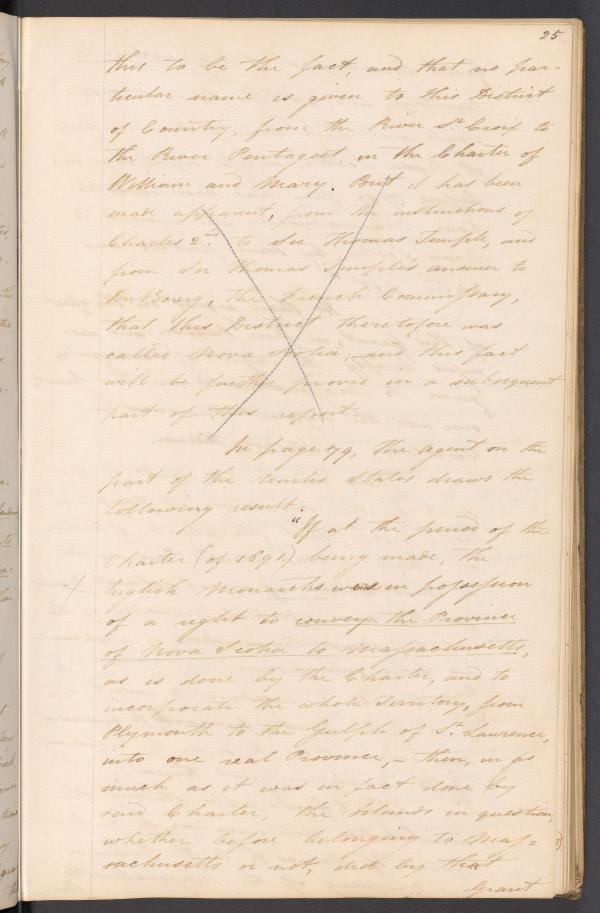 25
this to be the fact, and that no par-
ticular name is given to this District
of Country, from the River St. Croix to
the River Pentagoet, in the Charter of
William and Mary. But it has been
made apparent, from the instructions of
Charles 2nd. to Sir Thomas Temple, and
from Sir Thomas Temple's answer to
the French Commissary,
that this District theretofore was
called Nova Scotia, and this fact
will be further proved in a subsequent
part of this report.
In page 79, the agent on the
part of the United States draws the
following result.
"If at the period of the
Charter (of 1691.) being made, the
English Monarchs were in possession
of a right to convey the Province
of Nova Scotia to Massachusetts,
as is done by the Charter, and to
incorporate the whole Territory, from
Plymouth to the Gulph of St. Lawrence,
into one real Province, - then, in as
much as it was in fact done by
said Charter, the Islands in question,
whether before belonging to Mas=
sachusetts or not, did by that
Grant